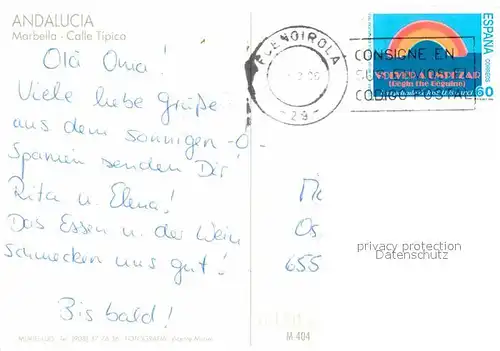 ANDALUCIA
Marbella - Calle Tipica
Olá Oma!
Viele liebe Grüße
aus dem sonnigen
Spanien senden Dir
Rita u. Elena!
Das Essen u. der Wein
schmecken uns gut!
Bis bald!
FUENGIROLA
-29-
CONSIGNE EN
CODIGO POSTAL
ESPAÑA
CORREOS
VOLVER A EMPEZAR
(Begin the Beguine)
60
Os
655
privacy protection
Datenschutz
M 404